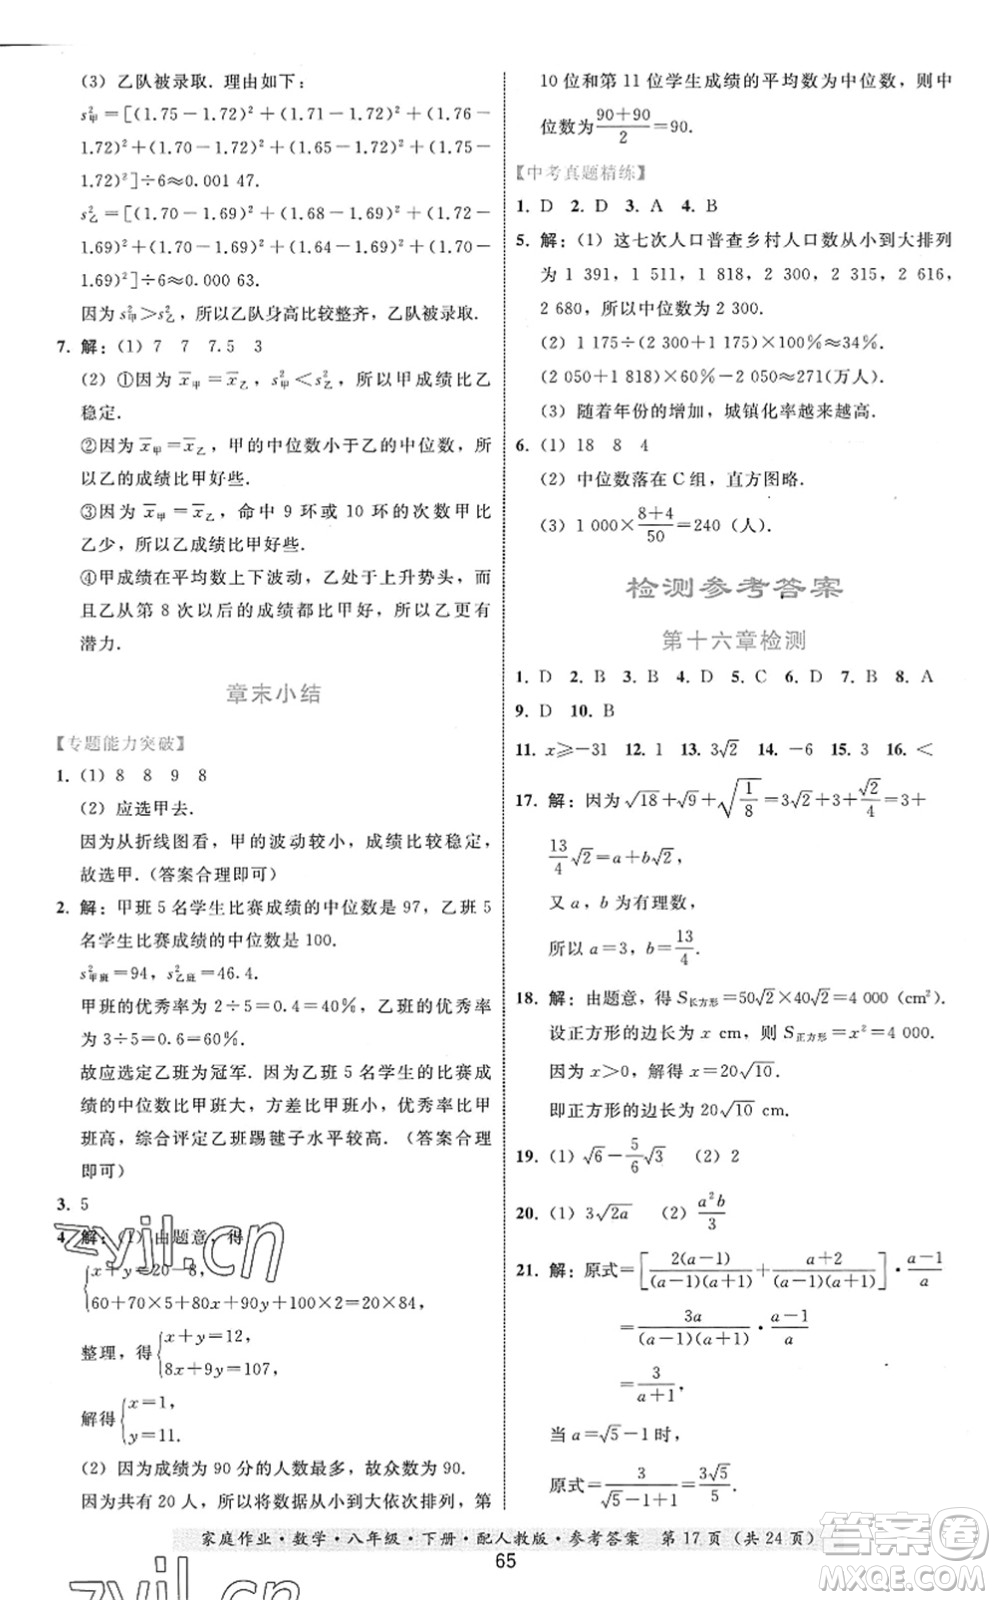 (3) 乙队被录取. 理由如下:
s²甲=[(1.75-1.72)²+(1.71-1.72)²+(1.76-
1.72)²+(1.70-1.72)²+(1.65-1.72)²+(1.75-
1.72)²]÷6≈0.001 47.
s²乙=[(1.70-1.69)²+(1.68-1.69)²+(1.72-
1.69)²+(1.70-1.69)²+(1.64-1.69)²+(1.70-
1.69)²]÷6≈0.000 63.
因为 s²甲>s²乙, 所以乙队身高比较整齐, 乙队被录取.
7. 解: (1) 7 7 7.5 3
(2) ①因为 x̅甲=x̅乙, s²甲<s²乙, 所以甲成绩比乙
稳定.
②因为 x̅甲=x̅乙, 甲的中位数小于乙的中位数, 所
以乙的成绩比甲好些.
③因为 x̅甲=x̅乙, 命中 9 环或 10 环的次数甲比
乙少, 所以乙成绩比甲好些.
④甲成绩在平均数上下波动, 乙处于上升势头, 而
且乙从第 8 次以后的成绩都比甲好, 所以乙更有
潜力.
章末小结
【专题能力突破】
1. (1) 8 8 9 8
(2) 应选甲去.
因为从折线图看, 甲的波动较小, 成绩比较稳定,
故选甲. (答案合理即可)
2. 解: 甲班 5 名学生比赛成绩的中位数是 97, 乙班 5
名学生比赛成绩的中位数是 100.
s²甲班=94, s²乙班=46.4.
甲班的优秀率为 2÷5=0.4=40%, 乙班的优秀率
为 3÷5=0.6=60%.
故应选定乙班为冠军. 因为乙班 5 名学生的比赛成
绩的中位数比甲班大, 方差比甲班小, 优秀率比甲
班高, 综合评定乙班踢毽子水平较高. (答案合理
即可)
3. 5
4. 解: (1) 由题意, 得
{x+y=20-8,
60+70×5+80x+90y+100×2=20×84,
整理, 得{x+y=12,
8x+9y=107,
解得{x=1,
y=11.
(2) 因为成绩为 90 分的人数最多, 故众数为 90.
因为共有 20 人, 所以将数据从小到大依次排列, 第
10 位和第 11 位学生成绩的平均数为中位数, 则中
位数为(90+90)/2=90.
【中考真题精练】
1. D 2. D 3. A 4. B
5. 解: (1) 这七次人口普查乡村人口数从小到大排列
为 1 391, 1 511, 1 818, 2 300, 2 315, 2 616,
2 680, 所以中位数为 2 300.
(2) 1 175÷(2 300+1 175)×100%≈34%.
(2 050+1 818)×60%-2 050≈271(万人).
(3) 随着年份的增加, 城镇化率越来越高.
6. (1) 18 8 4
(2) 中位数落在 C 组, 直方图略.
(3) 1 000×(8+4)/50=240 (人).
检测参考答案
第十六章检测
1. D 2. B 3. B 4. D 5. C 6. D 7. B 8. A
9. D 10. B
11. x≥-31 12. 1 13. 3√2 14. -6 15. 3 16. <
17. 解: 因为 √18+√9+√(1/8)=3√2+3+√2/4=3+
13/4√2=a+b√2,
又 a, b 为有理数,
所以 a=3, b=13/4.
18. 解: 由题意, 得 S长方形=50√2×40√2=4 000 (cm²).
设正方形的边长为 x cm, 则 S正方形=x²=4 000.
因为 x>0, 解得 x=20√10.
即正方形的边长为 20√10 cm.
19. (1) √6-5/6√3 (2) 2
20. (1) 3√(2a) (2) a²b/3
21. 解: 原式=[2(a-1)/((a-1)(a+1))+(a+2)/((a-1)(a+1))]·(a-1)/a
=3a/((a-1)(a+1))·(a-1)/a
=3/(a+1),
当 a=√5-1 时,
原式=3/(√5-1+1)=3√5/5.
家庭作业·数学·八年级·下册·配人教版·参考答案 第 17 页 (共 24 页)
65
zyjl.cn
zyjl.cn
答案圈
MXQE.COM